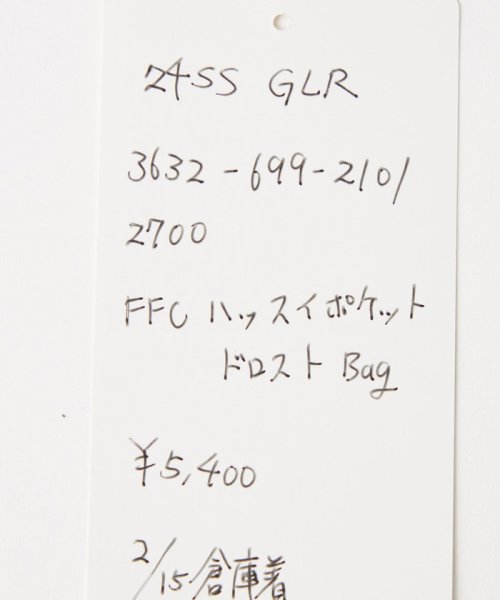 24SS GLR
3632-699-2101
2700
FFC ハッスイポケット
ドロスト Bag
¥5,400
2/15倉庫着